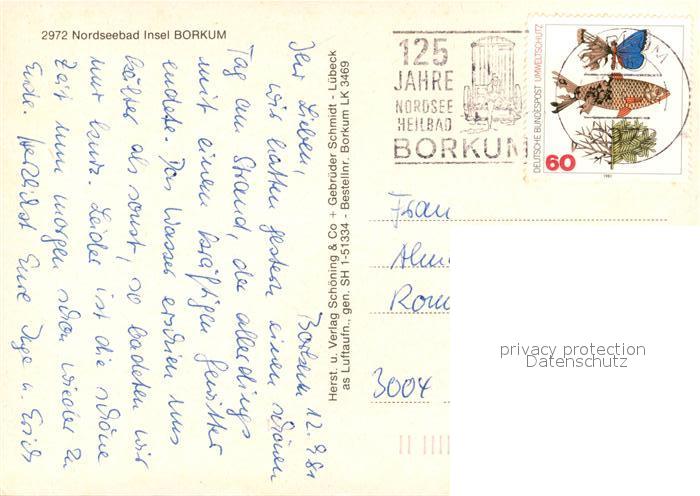 2972 Nordseebad Insel BORKUM
Borkum 12.9.81
Ihr Lieben,
wir hatten gestern einen schönen
Tag am Strand, der allerdings
mit einem kräftigen Gewitter
endete. Das Wasser erschien uns
kälter als sonst, so badeten wir
nur kurz. Leider ist die schöne
Zeit nun morgen schon wieder zu
Ende. Herzlichst Eure Inge u. Erich
Herst. u. Verlag Schöning & Co + Gebrüder Schmidt - Lübeck
as Luftaufn., gen. SH 1-51334 - Bestellnr. Borkum LK 3469
125
JAHRE
NORDSEE
HEILBAD
BORKUM
DEUTSCHE BUNDESPOST UMWELTSCHUTZ
60
1981
Frau
3004
privacy protection
Datenschutz